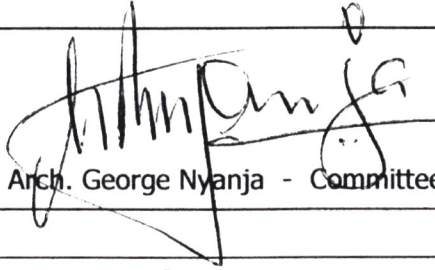 Arch. George Nyanja - Committee